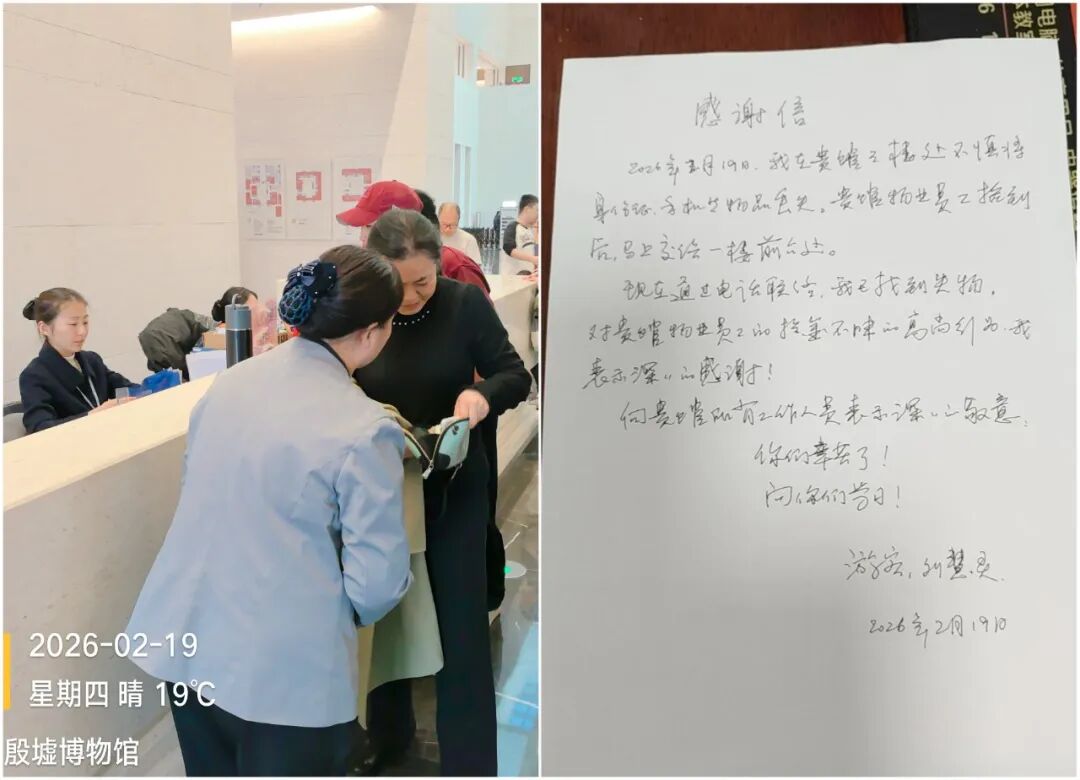 2026-02-19
星期四 晴 19℃
殷墟博物馆
感谢信
2026年2月19日,我在贵馆三楼处不慎将
身份证、手机等物品丢失。贵馆物业员工捡到
后,马上交给一楼前台处。
现在通过电话联络,我已找到失物,
对贵馆物业员工的拾金不昧的高尚行为,我
表示深深的感谢!
向贵馆所有工作人员表示深深的敬意,
你们辛苦了!
向你们学习!
游客:刘慧灵
2026年2月19日
电脑
6
1